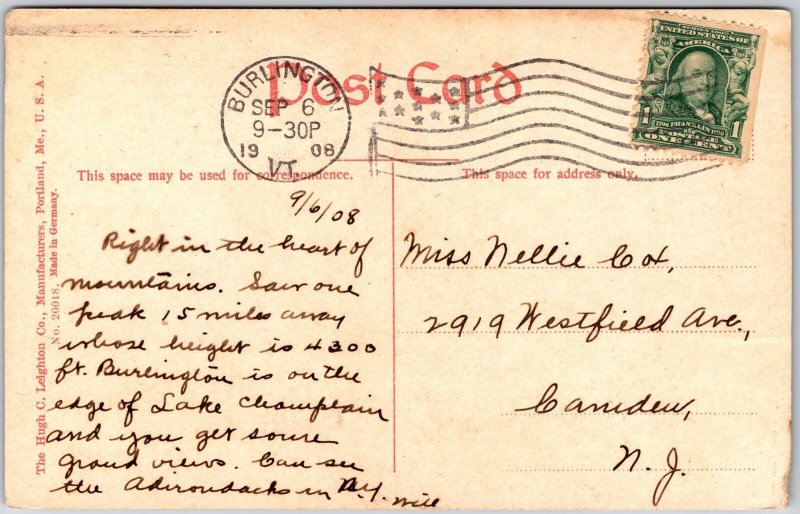 Post Card
BURLINGTON
SEP 6
9-30P
1908
VT.
UNITED STATES OF
AMERICA
FRANKLIN
POSTAGE
1 ONE CENT 1
This space may be used for correspondence.
This space for address only.
9/6/08
Right in the heart of
mountains. Saw one
peak 15 miles away
whose height is 4300
ft. Burlington is on the
edge of Lake Champlain
and you get some
grand views. Can see
the Adirondacks in N.Y. will
Miss Nellie Cox,
2919 Westfield Ave.,
Camden,
N. J.
The Hugh C. Leighton Co., Manufacturers, Portland, Me., U. S. A.
No. 20018. Made in Germany.